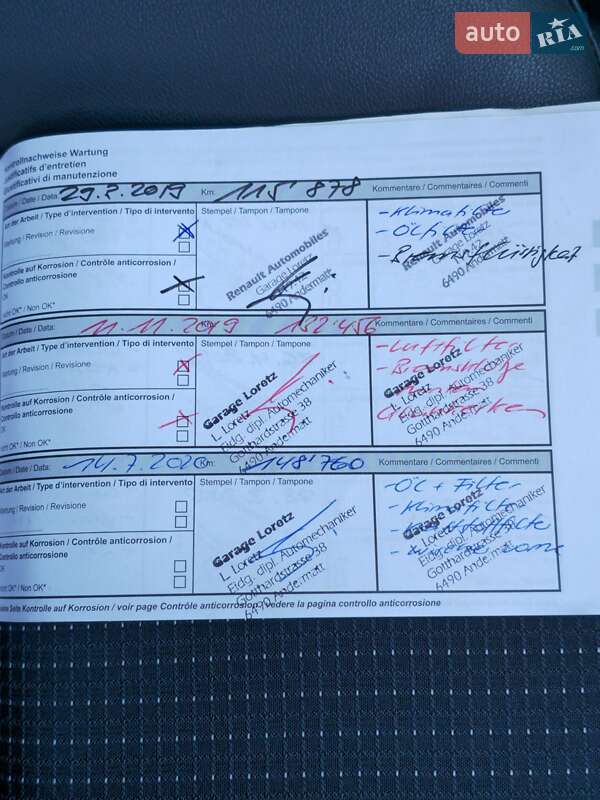 auto RIA.com
Kontrollnachweise Wartung
d'entretien
di manutenzione
/ Date / Data: 29.7.2019 Km: 115'878 Kommentare / Commentaires / Commenti
der Arbeit / Type d'intervention / Tipo di intervento Stempel / Tampon / Tampone
/ Revision / Revisione
auf Korrosion / Contrôle anticorrosion /
anticorrosione
OK
OK* / Non OK*
Renault Automobiles
Garage Loretz
6490 Andermatt
- Klimafilter
- Ölfilter
- Bremsflüssigkeit
Renault Automobiles
Garage Loretz
6490 Andermatt
/ Date / Data: 11.11.2019 Km: 132'456 Kommentare / Commentaires / Commenti
der Arbeit / Type d'intervention / Tipo di intervento Stempel / Tampon / Tampone
/ Revision / Revisione
Kontrolle auf Korrosion / Contrôle anticorrosion /
anticorrosione
OK
nicht OK* / Non OK*
Garage Loretz
L. Loretz
Eidg. dipl. Automechaniker
Gotthardstrasse 38
6490 Andermatt
- Luftfilter
Garage Loretz
L. Loretz
Eidg. dipl. Automechaniker
Gotthardstrasse 38
6490 Andermatt
/ Date / Data: 14.7.2020 Km: 148'760 Kommentare / Commentaires / Commenti
der Arbeit / Type d'intervention / Tipo di intervento Stempel / Tampon / Tampone
/ Revision / Revisione
auf Korrosion / Contrôle anticorrosion /
Controllo anticorrosione
OK
nicht OK* / Non OK*
Garage Loretz
L. Loretz
Eidg. dipl. Automechaniker
Gotthardstrasse 38
6490 Andermatt
- Öl + Filter
- Klimafilter
Garage Loretz
L. Loretz
Eidg. dipl. Automechaniker
Gotthardstrasse 38
6490 Andermatt
Seite Kontrolle auf Korrosion / voir page Contrôle anticorrosion / vedere la pagina controllo anticorrosione